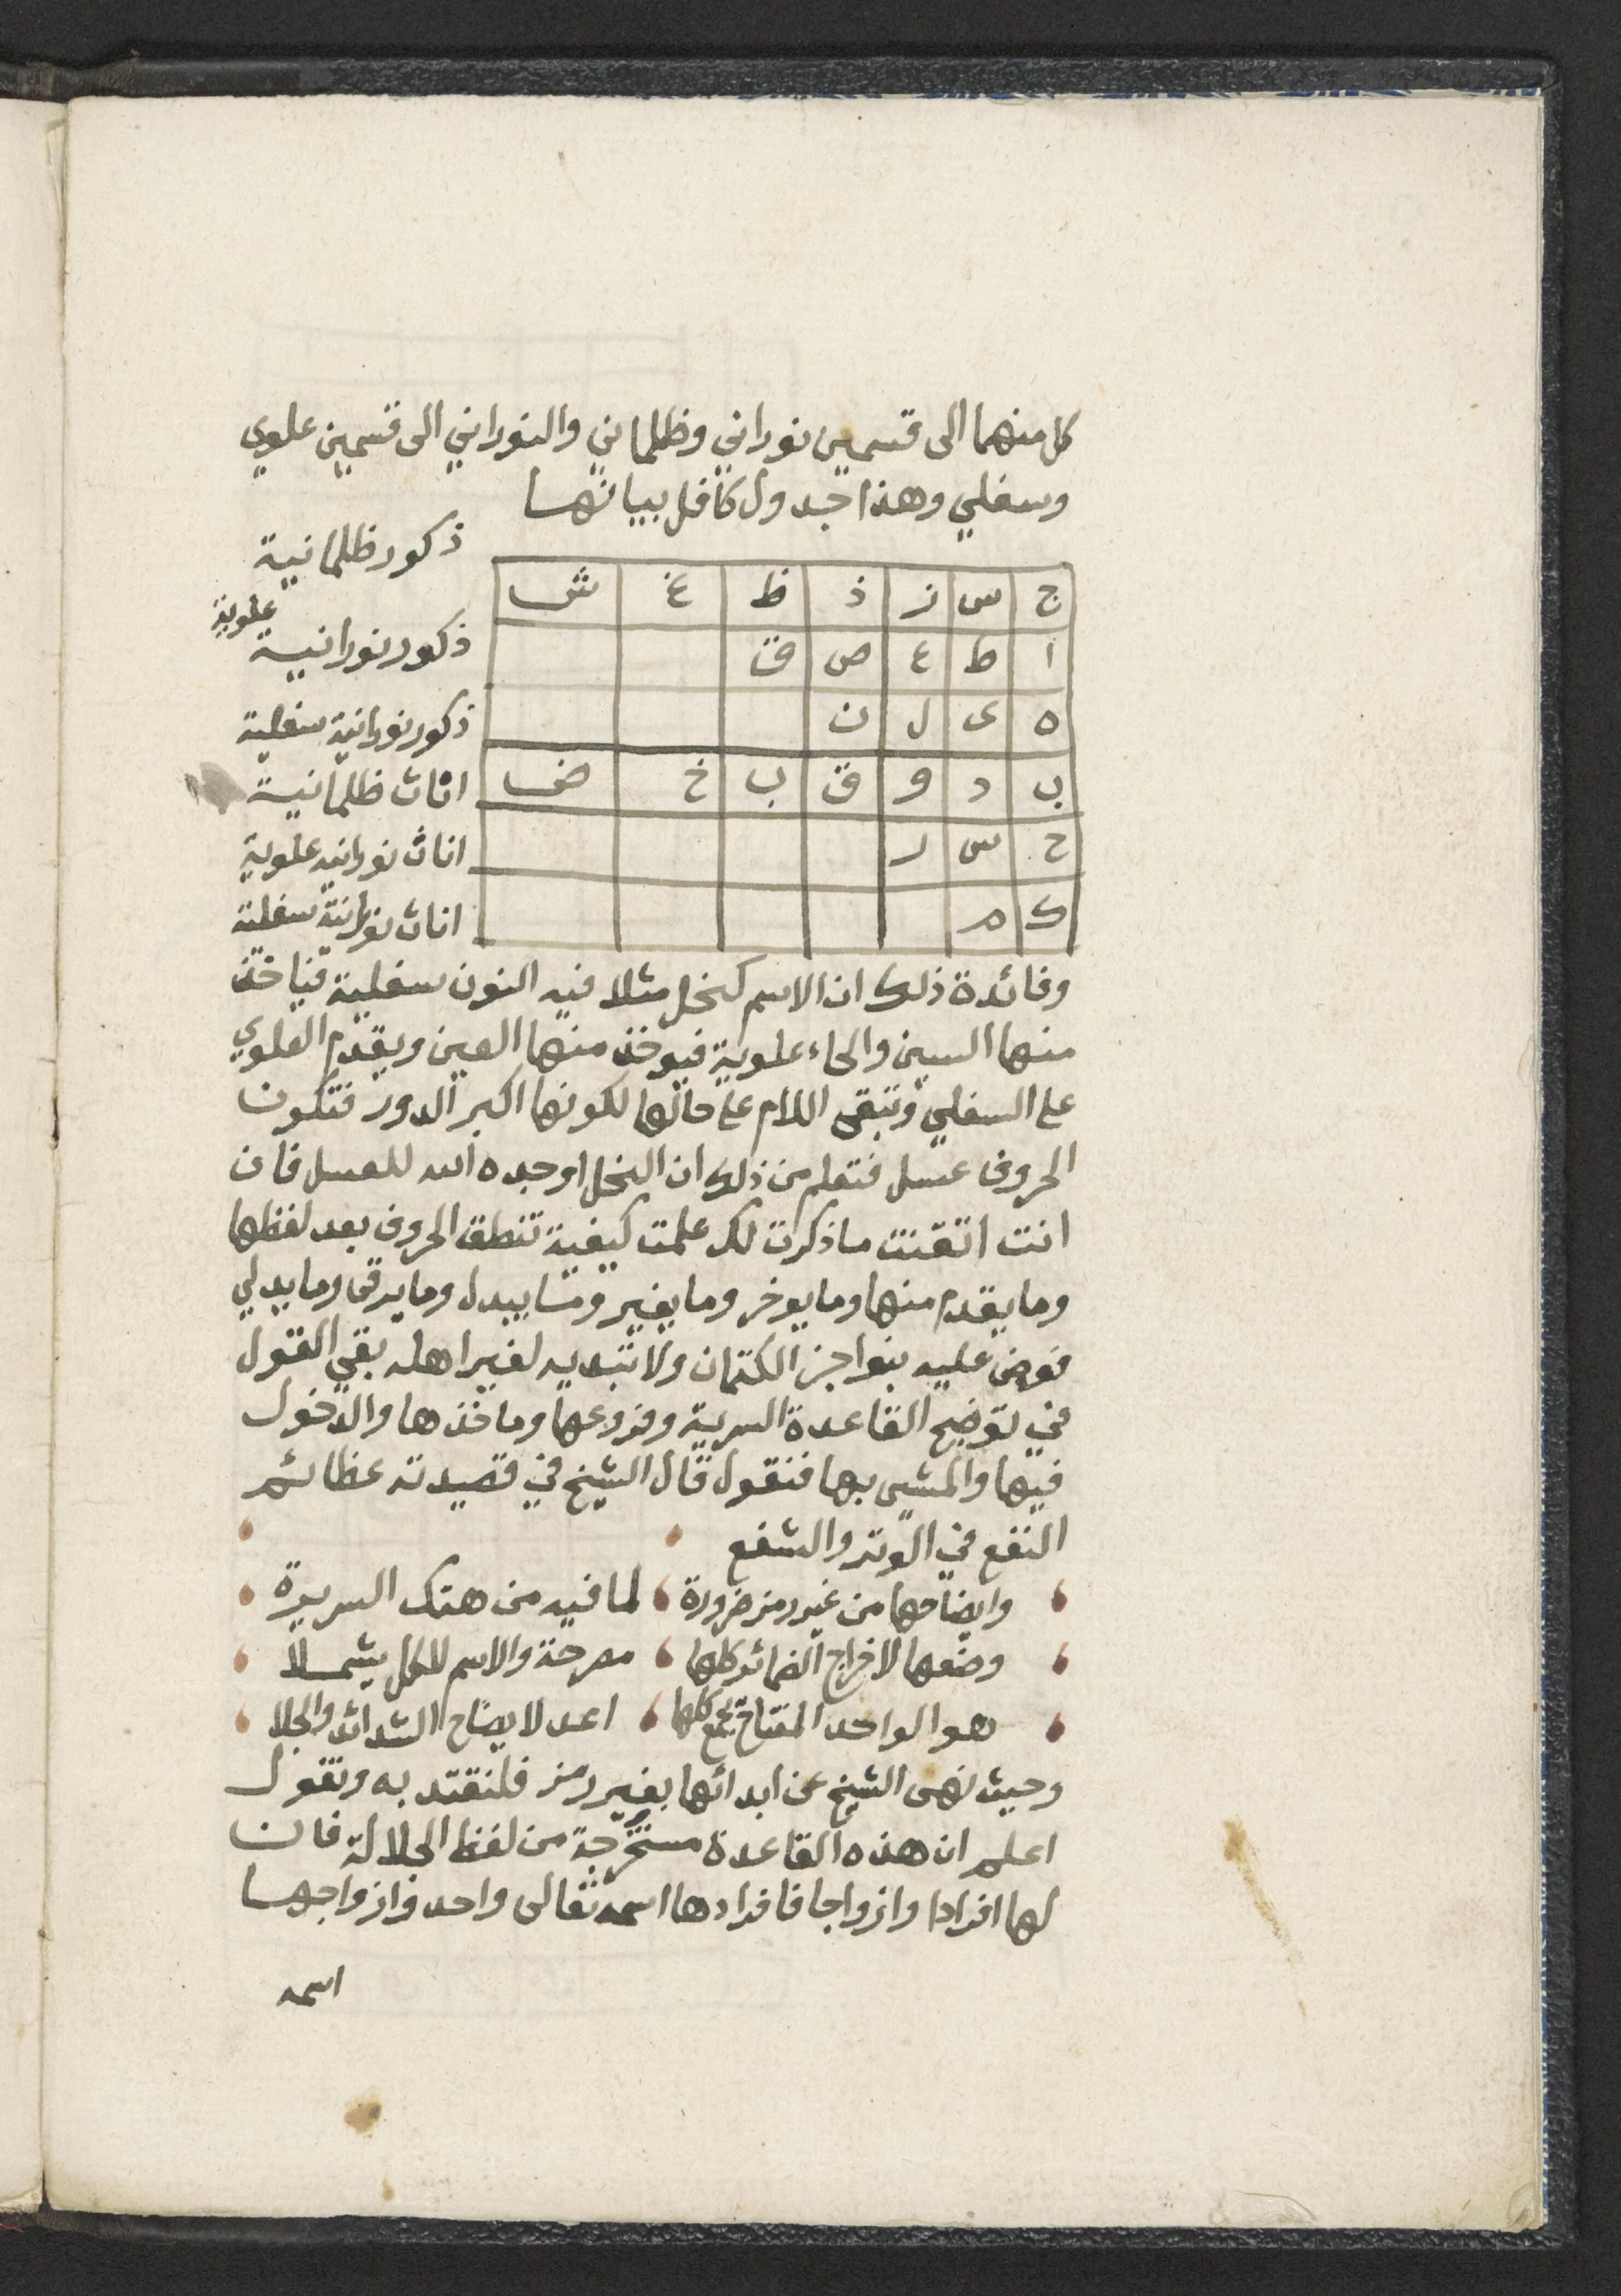 كل منهما الى قسمين نوراني وظلماني والنوراني الى قسمين علوي
وسفلي وهذا جدول كافل ببيانها
ج س ز ذ ظ غ ش ذكور ظلمانية
ا ط ع ص ق ذكور نورانية علوية
ه ى ل ن ذكور نورانية سفلية
ب د و ق ب خ ض اناث ظلمانية
ح س ر اناث نورانيه علوية
ك م اناث نورانية سفلية
وفائدة ذلك ان الاسم كنحل مثلا فيه النون سفلية فياخذ
منها السين والحاء علوية فيوخذ منها العين ويقدم العلوي
على السفلي وتبقى اللام على حالها لكونها اكبر الدور فتكون
الحروف عسل فتعلم من ذلك ان النحل اوجده الله للعسل فان
انت اتقنت ما ذكرت لك علمت كيفية تنطق الحروف بعد لفظها
وما يقدم منها وما يوخر وما يغير وما يبدل وما يرقى وما يدلي
فعض عليه بنواجز الكتمان ولا تبديه لغير اهله بقي القول
في توضيح القاعدة السرية وفروعها وماخذها والدخول
فيها والمشي بها فنقول قال الشيخ في قصيدته عظائم
النفع في الوتر والشفع
وايضاحها من غير رمز ضرورة لما فيه من هتك السريرة
وضعها لاخراج الضمائر كلها مصرحة والاسم للكل يشملا
هو الواحد المفتاح كلها اعد لايضاح الشدائد والجلا
وحيث نهى الشيخ عن ابدائها بغير رمز فلنقتد به ونقول
اعلم ان هذه القاعدة مستخرجة من لفظ الجلالة فان
لها افرادا وازواجا فافرادها اسمه تعالى واحد وازواجها
اسمه